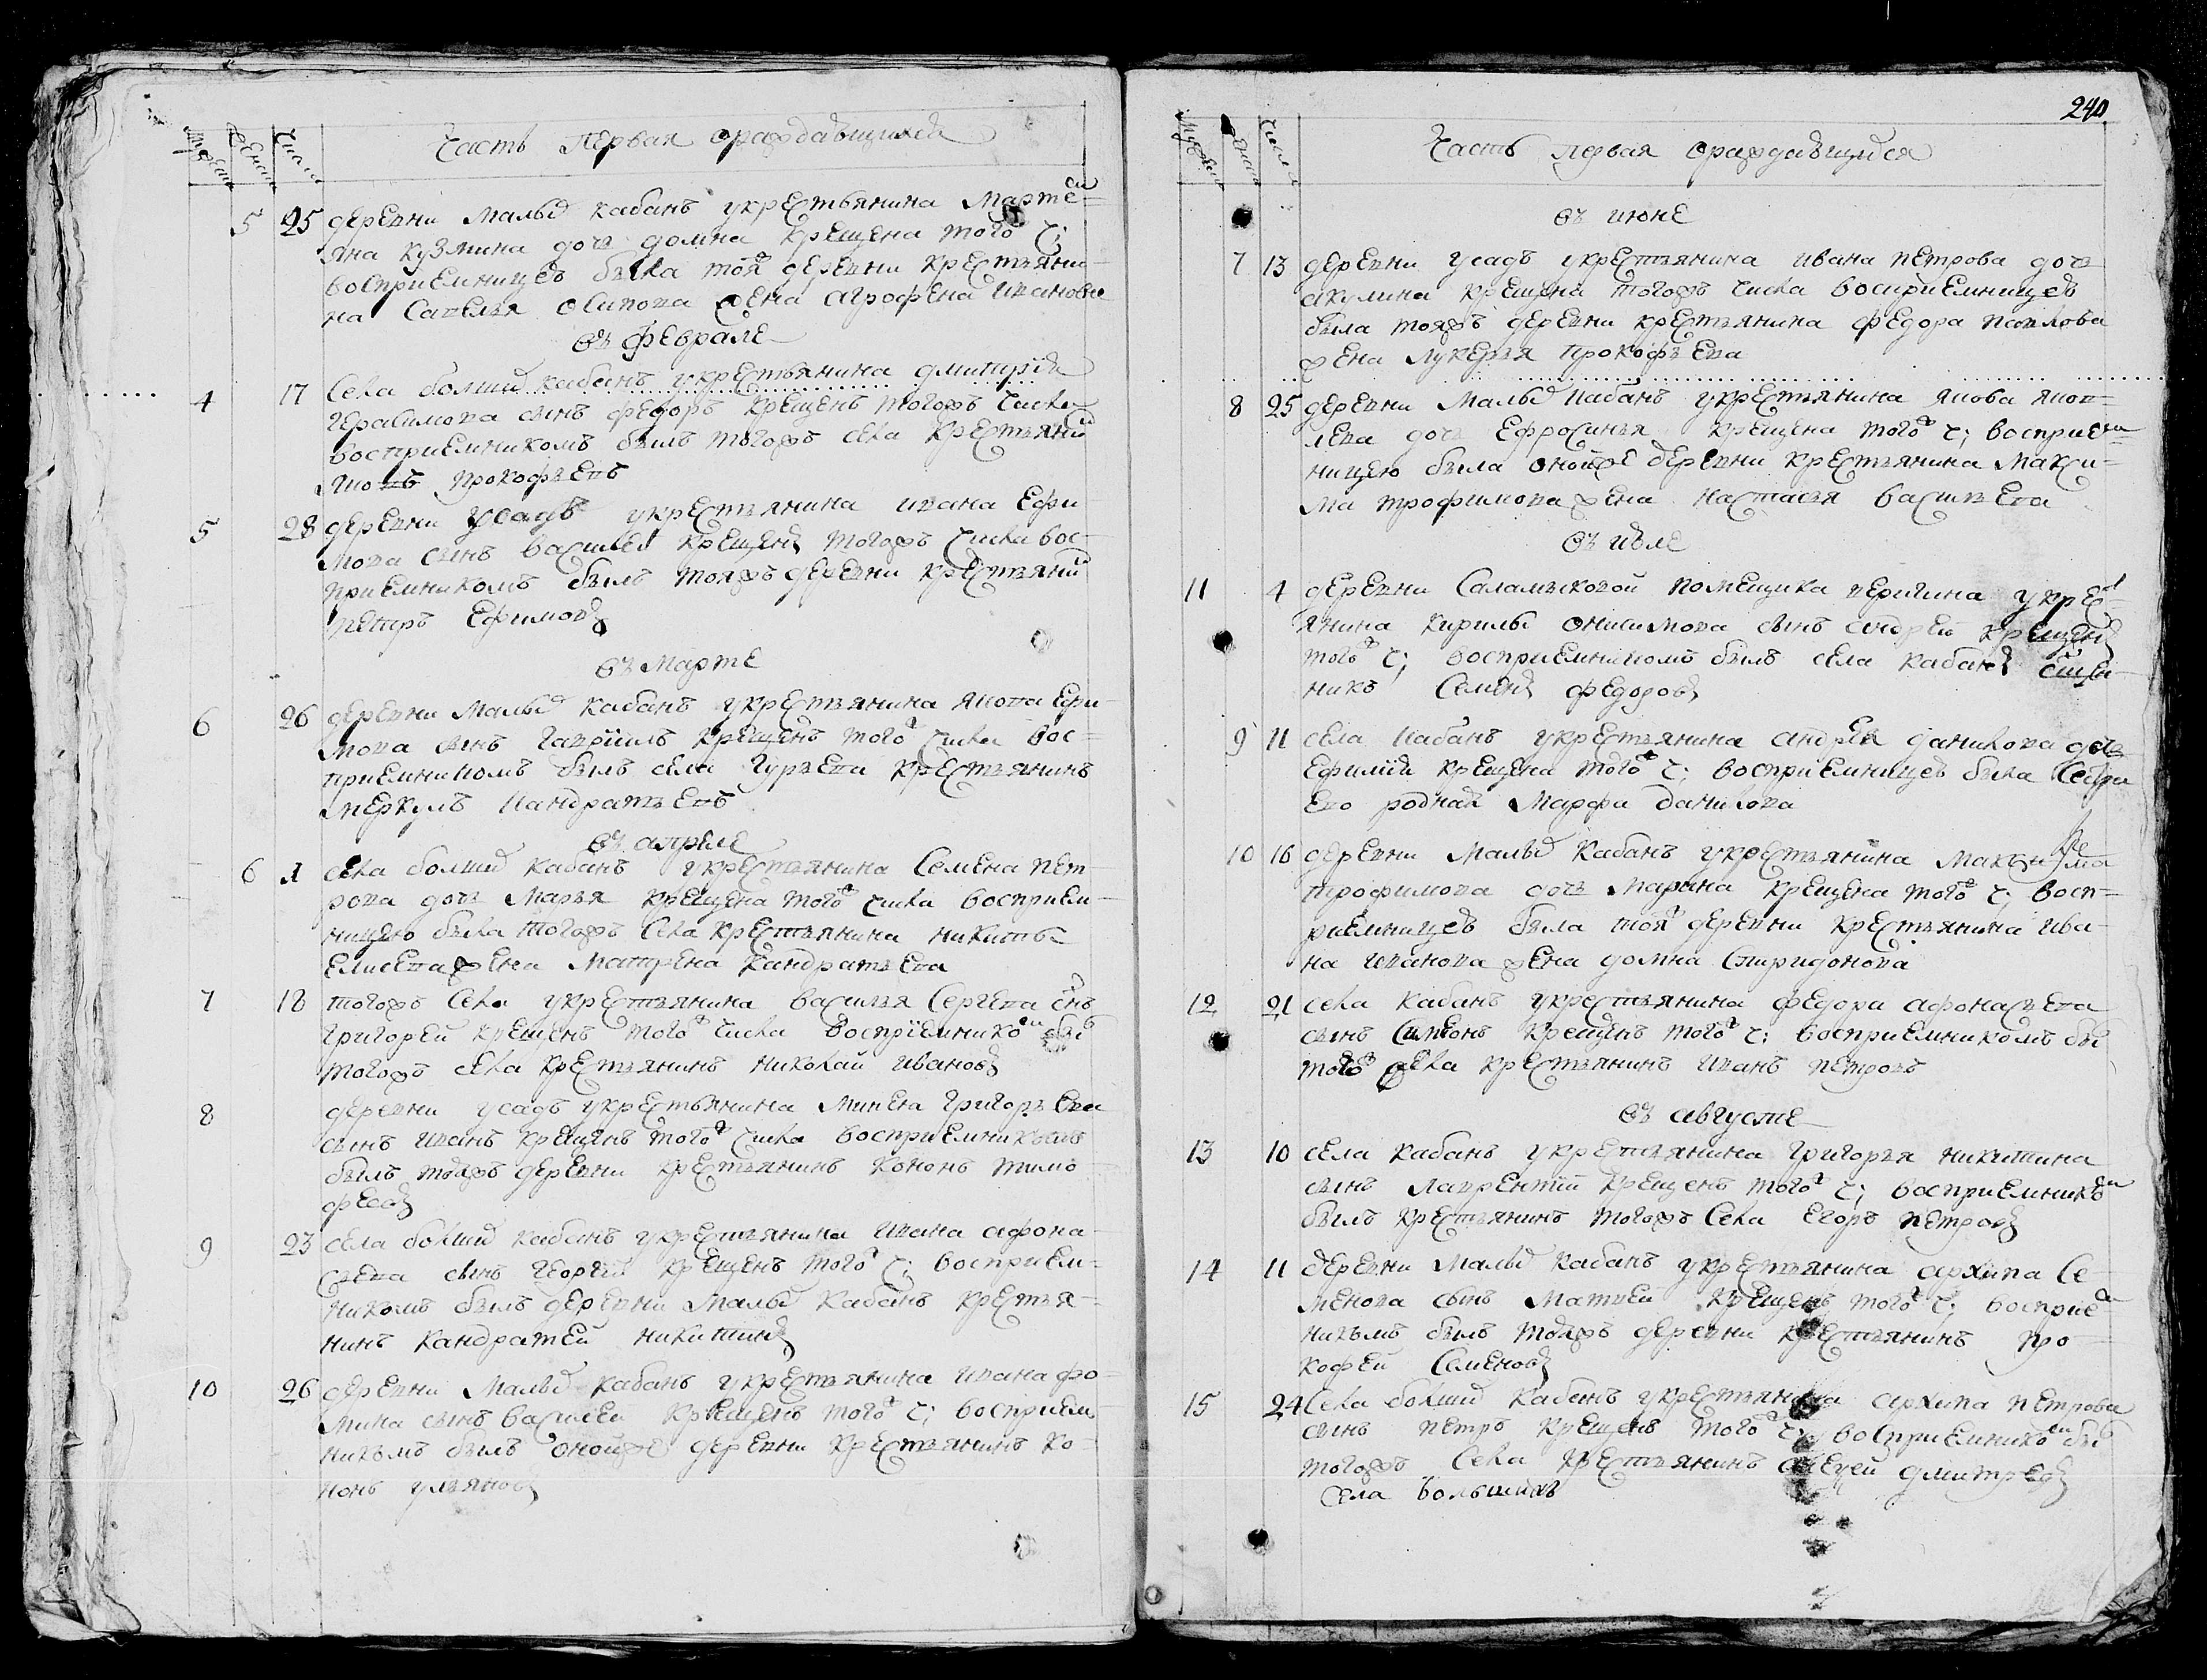 Часть первая ораждавшихся
мужеск женск числа
5 25 деревни малых кабанъ у крестьянина Марте
яна кузмина дочь домна крещена того ч;
восприемницею была тояж деревни крестьяни
на Савелья осипова жена агрофена иванова
въ феврале
4 17 села болших кабанъ у крестьянина дмитрия
герасимова сынъ федоръ крещенъ тогожъ числа
восприемникомъ былъ тогожъ села крестьяни
яковъ прокофьевъ
5 28 деревни усадъ у крестьянина ивана Ефи
мова сынъ василей крещенъ тогожъ числа вос-
приемникомъ былъ тояжъ деревни крестьяни
петръ Ефимовъ
въ марте
6 26 деревни малых кабанъ у крестьянина якова Ефи-
мова сынъ гавриилъ крещенъ тогож числа вос-
приемникомъ былъ села гурьева крестьянинъ
меркулъ кандратьевъ
въ апреле
6 1 села болших кабанъ у крестьянина Семена пет-
рова дочь Марья крещена тогож числа восприем-
ницею была тогожъ села крестьянина никиты
Елисеева жена Матрена кандратьева
7 18 тогожъ села у крестьянина василья Сергеева снъ
григорей крещенъ тогож числа восприемником бы
тогожъ села крестьянинъ николай ивановъ
8 деревни усадъ у крестьянина Минея григорьева
сынъ иванъ крещенъ тогож числа восприемникомъ
былъ тояжъ деревни крестьянинъ кононъ тимо
феевъ
9 23 села болших кабанъ у крестьянина ивана афона-
сьева сынъ георгий крещенъ тогож ч; восприем-
никомъ былъ деревни малых кабанъ крестья-
нинъ кандратей никитинъ
10 26 деревни малых кабанъ у крестьянина ивана фо-
мина сынъ василей крещенъ тогож ч; восприем
никомъ былъ онойже деревни крестьянинъ ко-
нонъ ульяновъ
240
Часть первая ораждавшихся
мужеск женск числа
въ июне
7 13 деревни усадъ у крестьянина ивана петрова дочь
акулина крещена тогожъ числа восприемницею
была тояжъ деревни крестьянина федора павлова
жена лукерья прокофьева
8 25 деревни малых кабанъ у крестьянина якова яков-
лева дочь Ефросинья крещена тогож ч; восприем
ницею была онойже деревни крестьянина макси-
ма трофимова жена настасья васильева
въ июле
11 4 деревни Саламыковой помещика у крест
янина кирилы онисимова сынъ андрей крещенъ
тогож ч; восприемникомъ былъ села кабанъ свщен-
никъ Семенъ федоровъ
9 11 села кабанъ у крестьянина андрея данилова дочь
Ефимия крещена тогож ч; восприемницею была сестра
Ево родная Марфа данилова
10 16 деревни малых кабанъ у крестьянина максима
трофимова дочь Марина крещена тогож ч; восп-
риемницею была тояж деревни крестьянина ива-
на иванова жена домна Спиридонова
12 21 села кабанъ у крестьянина федора афонасьева
сынъ Симеонъ крещенъ тогож ч; восприемникомъ бы
тогож села крестьянинъ иванъ петровъ
въ августе
13 10 села кабанъ у крестьянина григорья никитина
сынъ лаврентий крещенъ тогож ч; восприемником
былъ крестьянинъ тогожъ села егоръ петровъ
14 11 деревни малых кабанъ у крестьянина архипа Се-
менова сынъ Матвей крещенъ тогож ч; восприем
никомъ былъ тояжъ деревни крестьянинъ про
кофей Семеновъ
15 24 села болших кабанъ у крестьянина архипа петрова
сынъ петръ крещенъ тогож ч; восприемником бы
тогожъ села крестьянинъ дмитревъ
села большихъ